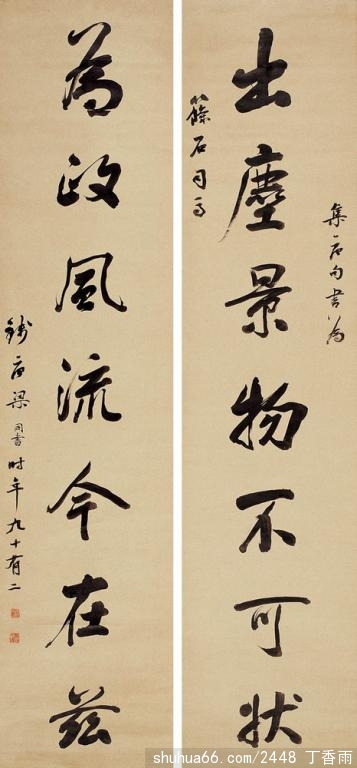 集唐句書為
出塵景物不可狀
篠石司馬
為政風流今在茲
錢唐梁同書時年九十有二
shuhua66.com/2448 丁香雨